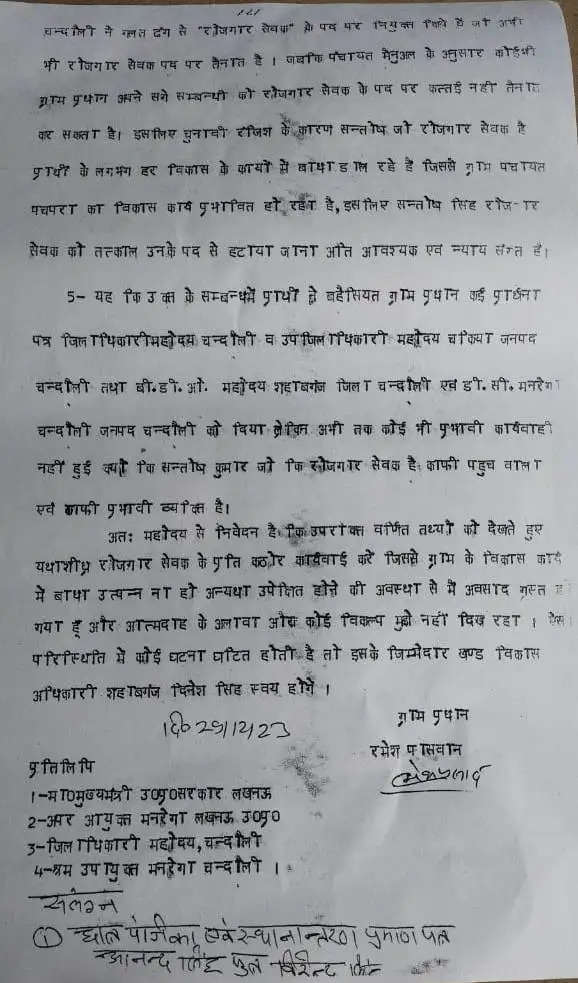 चन्दौली ने गलत ढंग से "रोजगार सेवक" के पद पर नियुक्त किये है जो अभी
भी रोजगार सेवक पद पर तैनात है । जबकि पंचायत मैनुअल के अनुसार कोई भी
ग्राम प्रधान अपने सगे सम्बन्धी को रोजगार सेवक के पद पर कत्तई नही तैनात
कर सकता है। इसलिए चुनावी रंजिश के कारण सन्तोष जो रोजगार सेवक है
प्रार्थी के लगभग हर विकास के कार्यो में बाधा डाल रहे है जिससे ग्राम पंचायत
पचपरा का विकास कार्य प्रभावित हो रहा है, इसलिए सन्तोष सिंह रोज-ार
सेवक को तत्काल उनके पद से हटाया जाना अति आवश्यक एवं न्याय संगत है।
5- यह कि उक्त के सम्बन्धमें प्रार्थी ने बहैसियत ग्राम प्रधान कई प्रार्थना
पत्र जिलाधिकारीमहोदय चन्दौली व उपजिलाधिकारी महोदय चकिया जनपद
चन्दौली तथा बी.डी.ओ. महोदय शहाबगंज जिला चन्दौली एवं डी.सी. मनरेगा
चन्दौली जनपद चन्दौली को दिया लेकिन अभी तक कोई भी प्रभावी कार्यवाही
नहीं हुई क्यों कि सन्तोष कुमार जो कि रोजगार सेवक है काफी पहुच वाला
एवं काफी प्रभावी व्यक्ति है।
अतः महोदय से निवेदन है कि उपरोक्त वर्णित तथ्यों को देखते हुए
यथाशीघ्र रोजगार सेवक के प्रति कठोर कार्यवाई करें जिससे ग्राम के विकास कार्य
में बाधा उत्पन्न ना हो अन्यथा उपेक्षित होने की अवस्था से मै अवसाद ग्रस्त हो
गया हूँ और आत्मदाह के अलावा और कोई विकल्प मुझे नही दिख रहा । ऐसी
परिस्थिति में कोई घटना घटित होती है तो इसके जिम्मेदार खण्ड विकास
अधिकारी शहाबगंज दिनेश सिंह स्वयं होगे ।
ग्राम प्रधान
रमेश पासवान
प्रतिलिपि
1-मा0मुख्यमंत्री उ0प्र0सरकार लखनऊ
2-अपर आयुक्त मनरेगा लखनऊ उ0प्र0
3-जिलाधिकारी महोदय, चन्दौली
4-श्रम उपायुक्त मनरेगा चन्दौली ।
संलग्न
① छात्र पंजिका एवं स्थानान्तरण प्रमाण पत्र
आनन्द सिंह पुत्र